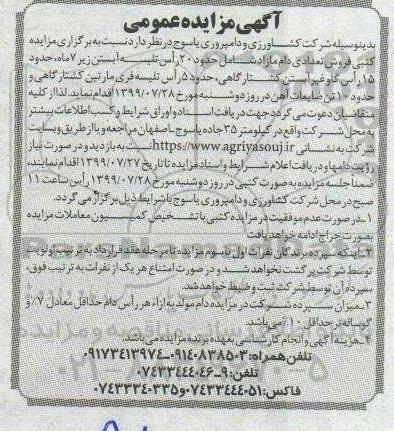 آگهی مزایده عمومی
بدینوسیله شرکت کشاورزی و دامپروری یاسوج در نظر دارد نسبت به برگزاری مزایده
کتبی فروش تعدادی دام مازاد شامل حدود ۲۰ رأس تلیسه آبستن زیر ۷ ماه، حدود
۱۵ رأس گاو غیر آبستن کشتارگاهی، حدود ۵ رأس تلیسه فری مارتین کشتارگاهی و
حدود ۱۰ تن ضایعات آهن در روز دوشنبه مورخ ۱۳۹۹/۰۷/۲۸ اقدام نماید. لذا از کلیه
متقاضیان دعوت می گردد جهت دریافت اسناد و اوراق شرایط و کسب اطلاعات بیشتر
به محل شرکت واقع در کیلومتر ۳۵ جاده یاسوج ـ اصفهان مراجعه و یا از طریق وبسایت
شرکت به نشانی https://www.agriyasouj.ir نسبت به بازدید و در صورت نیاز
رؤیت دامها و دریافت اعلام شرایط و اسناد مزایده تا تاریخ ۱۳۹۹/۰۷/۲۷ اقدام نمایند.
ضمناً جلسه مزایده به صورت کتبی در روز دوشنبه مورخ ۱۳۹۹/۰۷/۲۸ رأس ساعت ۱۱
صبح در محل شرکت کشاورزی و دامپروری یاسوج با شرایط ذیل برگزار می گردد.
۱ـ در صورت عدم موفقیت در مزایده کتبی با تشخیص کمیسیون معاملات مزایده
بصورت حراج ادامه خواهد یافت
۲ـ اینکه سپرده برندگان نفرات اول تا سوم مزایده تا مرحله عقد قرارداد به ترتیب اولویت
توسط شرکت برگشت نخواهد شد و در صورت امتناع هر یک از نفرات به ترتیب فوق،
سپرده آن توسط شرکت ثبت و ضبط خواهد شد.
۳ـ میزان سپرده شرکت در مزایده دام مولد به ازاء هر رأس دام حداقل معادل ۷٪ و
گوساله نر حداقل ۱۰٪ می باشد.
۴ـ هزینه آگهی و انجام کارشناسی بعهده برنده مزایده می باشد.
تلفن همراه: ۰۹۱۴۰۸۳۸۵۰۳ـ۰۹۱۷۳۴۱۳۹۷۴
تلفن: ۹ـ۰۷۴۳۳۴۴۴۰۴۶
فاکس: ۰۷۴۳۳۴۴۴۰۵۱ و ۰۷۴۳۳۳۴۰۳۳۵